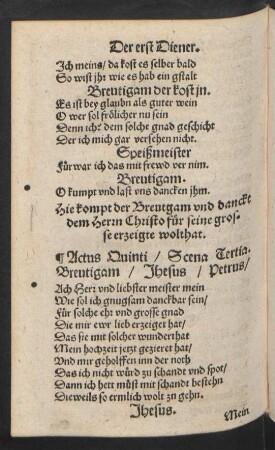 Der erst Diener.
Ich meins/ da kost es selber bald
So wist jhr wie es hab ein gstalt
Breutigam der kost jn.
Es ist bey glaubn als guter wein
O wer sol frölicher nu sein
Denn ich? dem solche gnad geschicht
Der ich mich gar versehen nicht.
Speißmeister
Für war ich das mit frewd ver nim.
Breutigam.
O kumpt vnd last vns dancken jhm.
Hie kompt der Breutgam vnd danckt
dem Herrn Christo für seine gros-
se erzeigte wolthat.
¶ Actus Quinti / Scena Tertia.
Breutigam / Jhesus / Petrus/
Ach Herr vnd liebster meister mein
Wie sol ich gnugsam danckbar sein/
Für solche ehr vnd grosse gnad
Die mir ewr lieb erzeiget hat/
Das sie mit solcher wunderthat
Mein hochzeit jetzt gezieret hat/
Vnd mir geholffen inn der noth
Das ich nicht würd zu schandt vnd spot/
Dann ich hett müst mit schandt bestehn
Dieweils so ermlich wolt zu gehn.
Jhesus.
Mein